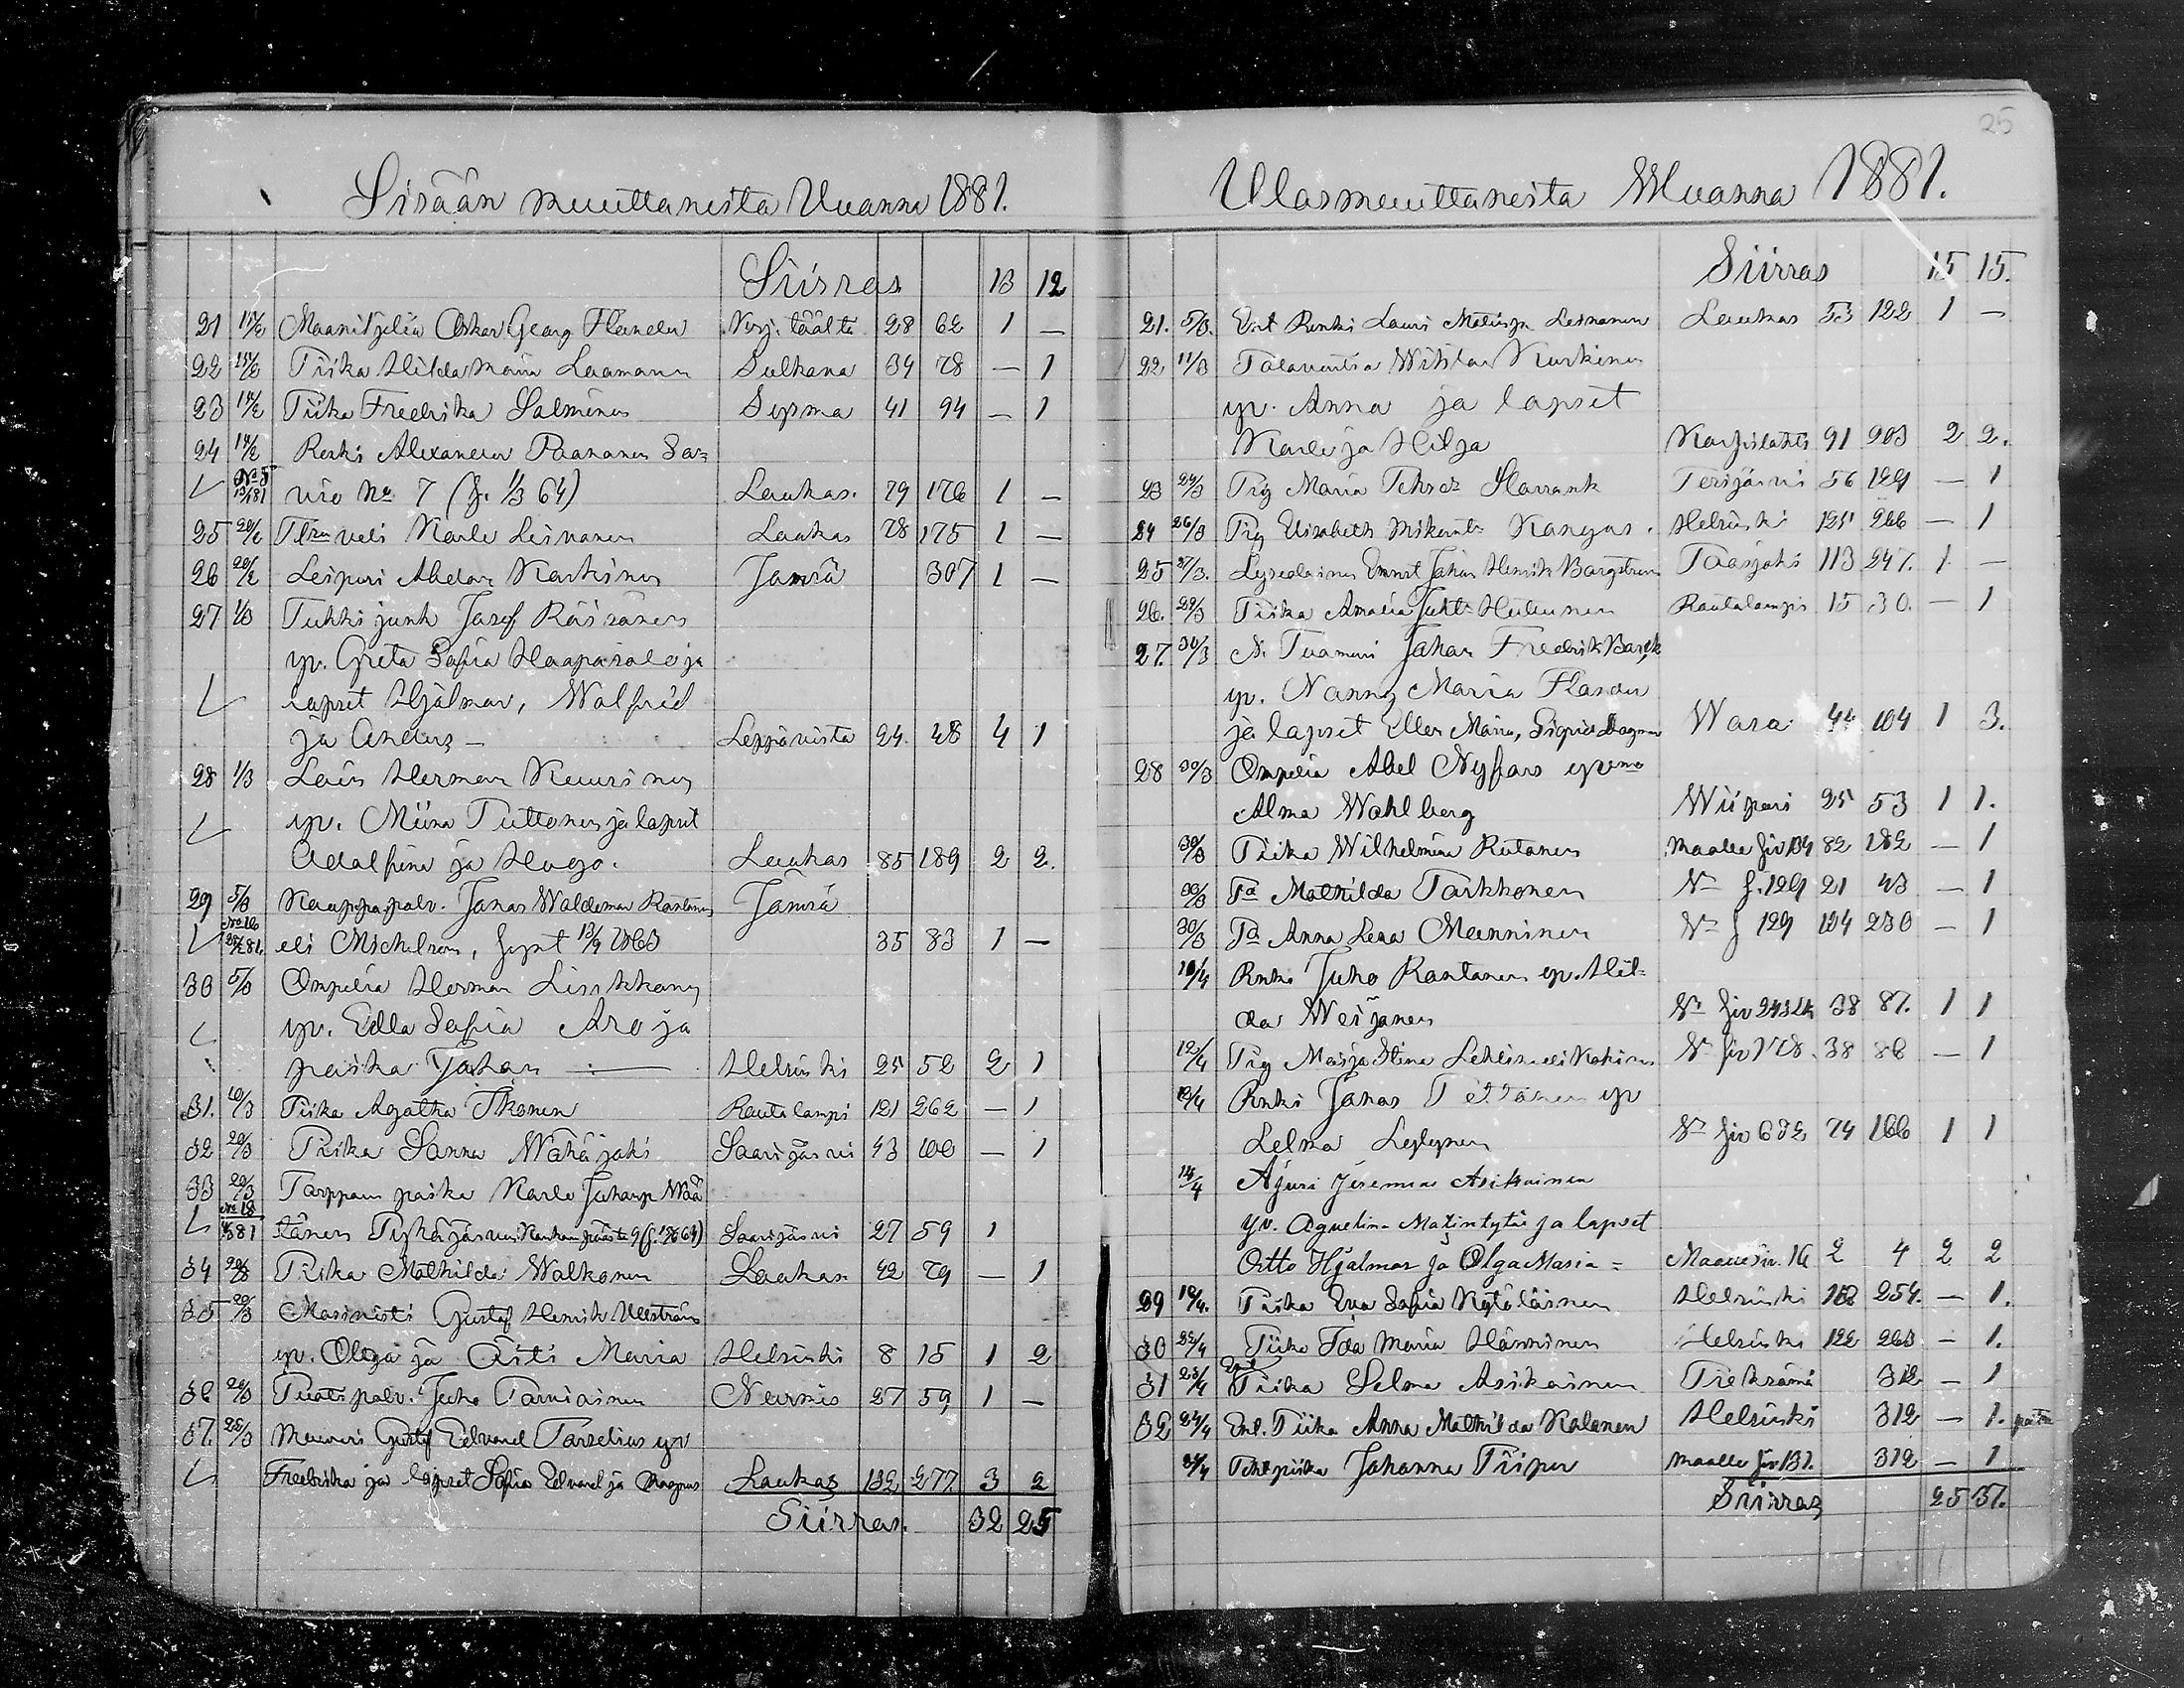 25
Sisään muuttaneita Vuanna 1881.
Siirras 13 12
21 15/2 Maanviljeliä Oskar Georg Flander Norj. täältä 28 62 1 —
22 15/2 Piika Hilda Maria Laamanen Sulkava 34 78 — 1
23 15/2 Piika Fredrika Salminen Sysma 41 94 — 1
24 14/2 Renki Alexander Paananen Saa=
No 5 13/1 81 vio No 7 (f. 1/3 64) Laukas. 79 176 1 —
25 20/2 veli Kaarle Leinonen Laukas 78 175 1 —
26 20/2 Leipuri Abelar Karkinen Jämsä 307 1 —
27 1/3 Tukkijunk Josef Räisänen
yv. Greta Sofia Haapasalo ja
lapset Hjalmar, Walfrid
ja Anders — Leppävirta 24 48 4 1
28 1/3 Herman Kuusinen
yv. Miina Puttonen ja lapset
Adalfina ja Hugo. Laukas 85 189 2 2.
29 5/3 Kauppapalv. Jonas Waldemar Rantanen Jämsä
No 16 28/2 81 eli Michelson, synt 13/9 1863 35 83 1 —
30 5/3 Ompelia Herman Liukkonen
yv. Edla Sofia Aro ja
poika Johan — Helsinki 25 52 2 1
31. 10/3 Piika Agatha Ikonen Rautalampi 121 262 — 1
32 20/3 Piika Sanna Wähäjoki Saarijärvi 43 100 — 1
33 20/3 Torppan poika Karle Juhanp. Wää
No 18 81 tänen Pyhäjärvi Saarijärvi 27 59 1
34 20/3 Piika Mathilda Walkonen Laukas 42 79 — 1
35 20/3 Masinisti Gustaf Henrik Ullström
yv. Olga ja Äiti Maria Helsinki 8 15 1 2
36 20/3 Puotipalv. Juho Tarviainen Nurmis 27 59 1 —
37. 25/3 Muurari Gustaf Edvard Torselius yv
Fredrika ja lapset Sofia Edvard ja Magnus Laukas 132 277 3 2
Siirras. 32 25
Ulosmuuttaneita Wuanna 1881.
Siirras 15 15.
21. 5/3. Ent Renki Lauri Matinp. Leinonen Laukas 53 122 1 —
22 11/3 Talavuutia Wihtor Karkinen
yv. Anna ja lapset
Kaarle ja Hilja Karjilahti 91 203 2 2.
23 24/3 Pig Maria Tehrez Slarrank Terijärvi 56 129 — 1
24 26/3 Pig Elisabeth Mikont. Kangas. Helsinki 125 266 — 1
25 27/3. Lyseolainen Ernst Johan Henrik Bargström Taasjoki 113 247. 1 —
26. 29/3 Piika Amalia Juht. Hulunen Rautalampi 15 30. — 1
27. 30/3 N. Tuomari Johan Fredrik Barck
yv. Nanny Maria Flander
ja lapset Ellen Maria, Sigrid Dagmar Wasa 44 104 1 3.
28 30/3 Ompelia Abel Nyfors yvnno
Alma Wahlberg Wiipuri 25 53 1 1.
30/3 Piika Wilhelmina Rutanen Maalle siv 134 82 182 — 1
30/3 Pa Mathilda Parkkonen Sn s. 129 21 43 — 1
30/3 Pa Anna Lena Manninen Sn s 129 104 230 — 1
10/4 Renki Juho Rantanen yv. Hil=
da Weijanen Sn siv 243 Lk 38 87. 1 1
12/4 Pig Maija Stina Lehtinen eli Kokinen Sn siv 178. 38 88 — 1
12/4 Renki Jonas Pettanen yv
Selma Leppänen Sn siv 632 74 166 1 1
14/4 Ajuri Jeremias Asikainen
yv. Agnetina Matintytär ja lapset
Otto Hjalmar ja Olga Maria = Maalle siv. 16 2 4 2 2
29 19/4. Piika Eva Sofia Kytöläinen Helsinki 118 254. — 1.
30 22/4 Piika Ida Maria Hänninen Helsinki 122 263 — 1.
31 23/4 Ent Piika Selma Asikainen Pieksämä 312 — 1
32 24/4 Enl. Piika Anna Mathilda Kolonen Helsinki 312 — 1.
24/4 piika Johanna Piipu Maalle siv 131. 312 — 1
Siirras 25 37.